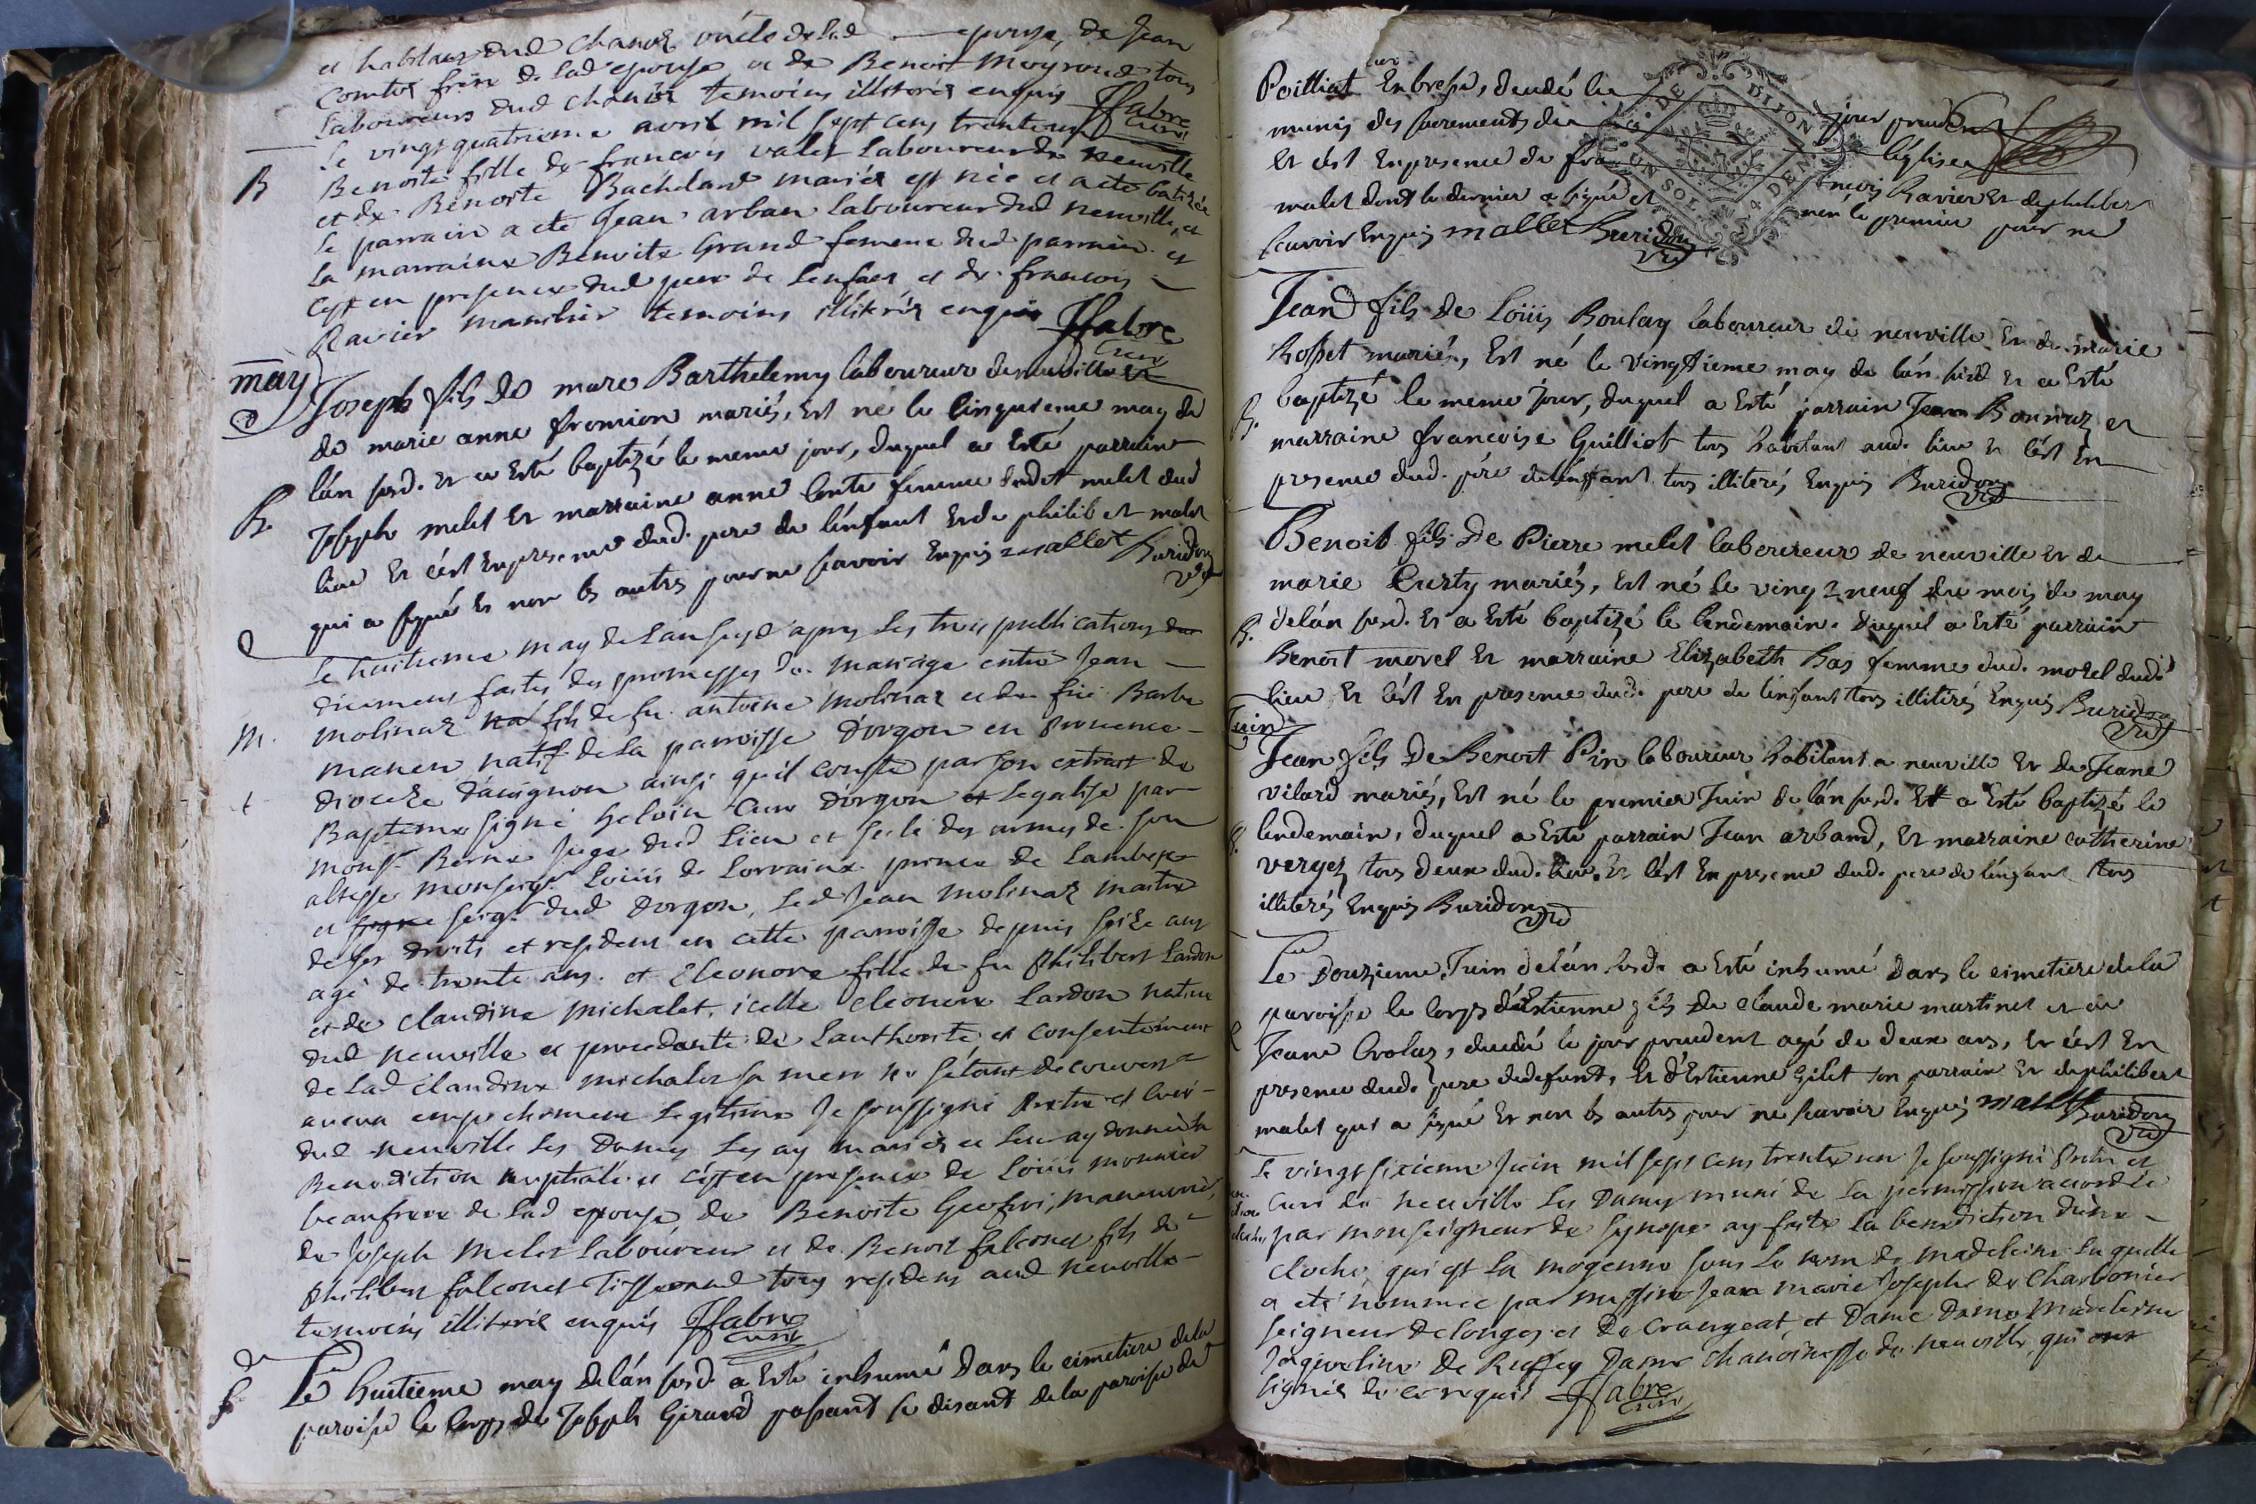 et habitans dud chanos oncle de lad epouse, de Jean
Comtet frere de lad epouse et de Benoit Moyroud tous
Laboureurs dud chanos temoins illiterés enquis JFabre
curé
B
Le vingt quatrieme avril mil sept cens trente un
Benoite fille de francois valet Laboureur de neuville
et de Benoite Bachelard mariés est née et a eté batisée
Le parrain a eté Jean arban laboureur dud neuville, et
La marraine Benoite Grand femme dud parrain et
c'est en presence dud pere de l'enfant et de francois
Ravier manilier temoins illiterés enquis JFabre
curé
may
Joseph fils de marc Barthelemy laboureur de neuville et
de marie anne fromion mariés, Est né le cinquieme may de
lán susd. et a Esté baptizé le meme jour, duquel a Esté parrain
B.
Joseph melet Et marraine anne Conte femme dudit melet dud
lieu Et c'ést En presence dud. pere de l'énfant Et de philibert malet
qui a signé Et non les autres pour ne scavoir Enquis mallet Buridon
vic
Le huitieme may de L'an susd apres Les trois publications
dûement faites des promesses de mariage entre Jean
M.
molinar fils de fu antoine molinar et de fue Barbe
manen natif de La parroisse d'orgon en provence
diocese d'avignon ainsi qu'il conste par son extrait de
Bapteme signé heloin curé d'orgon et legalisé par
mons.r Berne Juge dud Lieu et scelé des armes de son
altesse monseigr Loüis de Lorraine prince de Lambesc
et seigr dud d'orgon, Led Jean molinar maitre
de ses droits et resident en cette parroisse depuis seize ans
agé de trente ans. et Eleonore fille de fu philibert Lardon
et de claudine michalet, icelle eleonore Lardon native
dud neuville et procedante de L'authorité et consentement
de Lad claudine michalet sa mere ne s'étant decouvert
aucun empechement legitime Je soussigné Pretre et Curé
dud neuville Les Dames Les ay mariés et leur ay donné la
Benediction nuptiale et c'est en presence de Loüis monnier
beaufrere de Lad epouse, de Benoite Geofroi, manouvrier,
de Joseph Melet Laboureur et de Benoit falconet fils de
philibert falconet Tisserand tous residens aud neuville
temoins illiterés enquis JFabre
curé
Le huitieme may de lán susd. a Esté inhumé Dans le cimetiere de la
paroisse le Corps de Joseph Giraud passant se disant de la paroisse de
Poilliat En bresse, decedé le jour precedent
munis des sacrements de l'église
Et c'ést En presence de francois Ravier Et de philibert
malet dont le dernier a signé et non le premier pour ne
scavoir Enquis mallet Buridon
vic
G. DE DIJON
UN SOL 4 DEN
Jean fils de Loüis Boulay laboureur de neuville Et de marie
Rosset mariés, Est né le vingtieme may de lán susd Et a Esté
B.
baptizé le meme jour, duquel a Esté parrain Jean Bonnaz et
marraine francoise Guilliot tous habitant aud. lieu Et c'ést En
presence dud. pére de lénfant tous illiterés Enquis Buridon
vic
Benoit fils De Pierre melet laboureur de neuville Et de
marie Curty mariés, Est né le vingt neuf du mois de may
B.
de lán susd. Et a Esté baptizé le lendemain. duquel a Esté parrain
Benoit morel Et marraine Elizabeth Bas femme dud. morel dud.
lieu Et c'ést En presence dud. pere de l'énfant tous illiterés Enquis Buridon
vic
Juin
Jean fils De Benoit Pin laboureur habitant a neuville Et de Jeane
vilard mariés, Est né le premier Juin de lán susd. Et a Esté baptizé le
B.
lendemain, duquel a Esté parrain Jean arband, Et marraine catherine
verget tous deux dud. lieu. Et c'ést En presence dud. pere de l'énfant tous
illiterés Enquis Buridon
vic
Le Douzieme Juin de lán susd. a Esté inhumé Dans le cimetiere de la
paroisse le corps d'Estienne fils de claude marie martinet et de
Jeane Crolaz, decedé le jour precedent agé de deux ans, Et c'ést En
presence dud. pere du defunt, Et d'Estienne Gilet son parrain Et de philibert
malet qui a signé Et non les autres pour ne scavoir Enquis mallet Buridon
vic
Le vingt sixieme Juin mil sept cens trente un Je soussigné Pretre et
Curé de neuville Les Dames muni de La permission accordée
par monseigneur de Synope ay faite La benediction d'une
cloche, qui est La moyenne sous Le nom de madeleine Laquelle
a eté nommée par messire Jean marie Joseph de Charbonier
seigneur de longes et de Crangeat et Dame Dame Madeleine
Jaqueline de Ruffey Dame chanoinesse de neuville, qui ont
signés de ce requis JFabre
curé